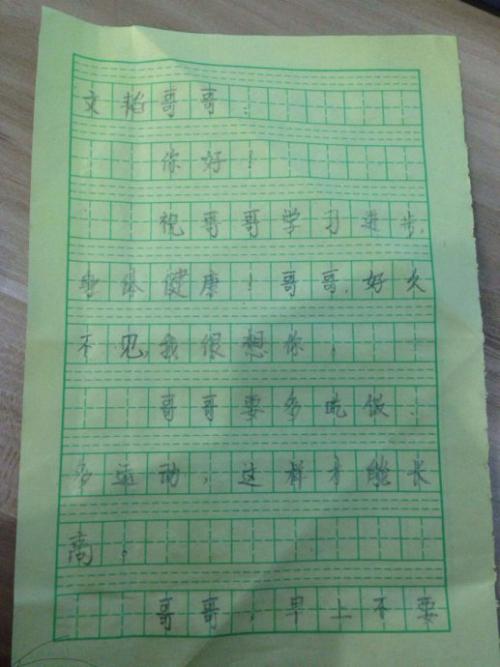 文韬哥哥:
你好!
祝哥哥学习进步,
身体健康!哥哥,好久
不见,我很想你,
哥哥要多吃饭.
多运动,这样才能长
高。
哥哥,早上不要